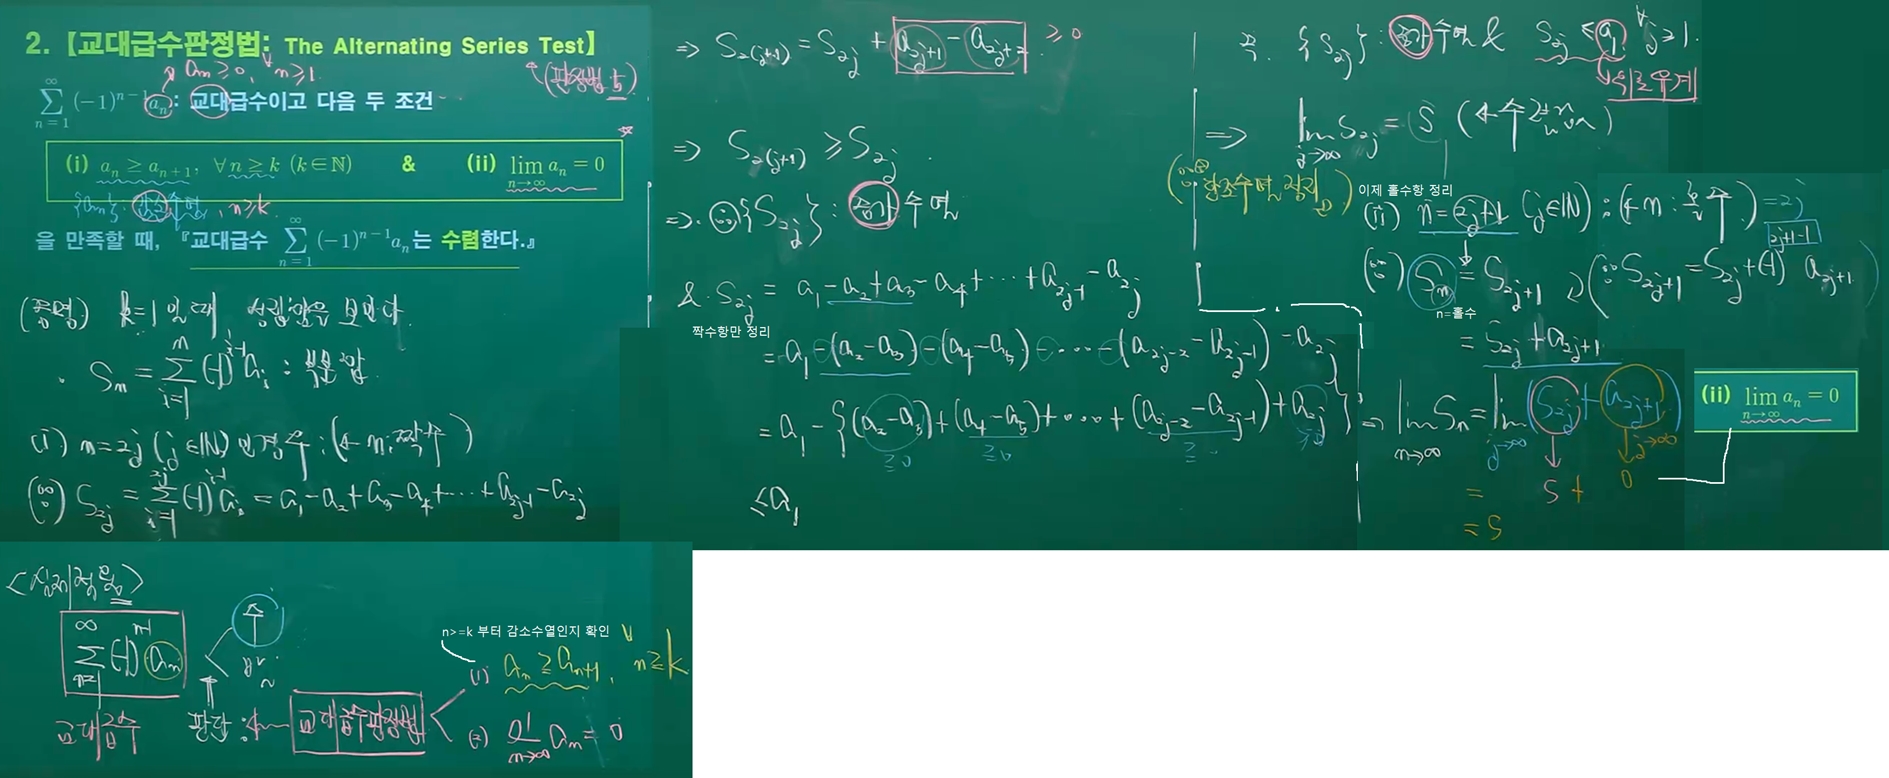 2. 【교대급수판정법: The Alternating Series Test】
aₙ ≥ 0, ∀n ≥ 1.
(판정법 5)
∑_{n=1}^{∞} (-1)^{n-1}aₙ : 교대급수이고 다음 두 조건
(i) aₙ ≥ aₙ₊₁, ∀n ≥ k (k∈ℕ) & (ii) lim_{n→∞} aₙ = 0
{aₙ} : 감소수열, n ≥ k.
을 만족할 때, 『교대급수 ∑_{n=1}^{∞} (-1)^{n-1}aₙ는 수렴한다.』
(증명) k=1 일 때 성립함을 보인다.
Sₙ = ∑_{i=1}^{n} (-1)^{i-1} aᵢ : 부분합
(i) n=2j (j∈ℕ)인 경우 : (← n: 짝수)
(∵) S₂ⱼ = ∑_{i=1}^{2j} (-1)^{i-1} aᵢ = a₁ - a₂ + a₃ - a₄ + ⋯ + a_{2j-1} - a_{2j}
⇒ S_{2(j+1)} = S_{2j} + a_{2j+1} - a_{2j+2} ≥ 0
⇒ S_{2(j+1)} ≥ S_{2j}.
⇒ ∴ {S_{2j}} : 증가수열
& S_{2j} = a₁ - a₂ + a₃ - a₄ + ⋯ + a_{2j-1} - a_{2j}
짝수항만 정리
= a₁ - (a₂-a₃) - (a₄-a₅) - ⋯ - (a_{2j-2} - a_{2j-1}) - a_{2j}
= a₁ - {(a₂-a₃) + (a₄-a₅) + ⋯ + (a_{2j-2} - a_{2j-1}) + a_{2j}}
≥0 ≥0 ≥0 ≥0
≤ a₁
즉, {S_{2j}} : 증가수열 & S_{2j} ≤ a₁, ∀j ≥ 1.
위로 유계
⇒ lim_{j→∞} S_{2j} = S (← 수렴)
(∵ 단조수렴정리)
이제 홀수항 정리
(ii) n = 2j+1 (j∈ℕ) : (← n: 홀수) = 2j
2j+1-1
(∵) Sₙ = S_{2j+1} (∵ S_{2j+1} = S_{2j} + (-1) a_{2j+1})
n=홀수
= S_{2j} + a_{2j+1}
⇒ lim_{n→∞} Sₙ = lim_{j→∞} (S_{2j} + a_{2j+1})
j→∞
= S + 0
= S
(ii) lim_{n→∞} aₙ = 0
<실제적용>
∑_{n=1}^{∞} (-1)^{n-1} aₙ
교대급수
수
발
판단 : ← 교대급수판정법
n>=k 부터 감소수열인지 확인
(1) aₙ ≥ aₙ₊₁, ∀n ≥ k
(2) lim_{n→∞} aₙ = 0